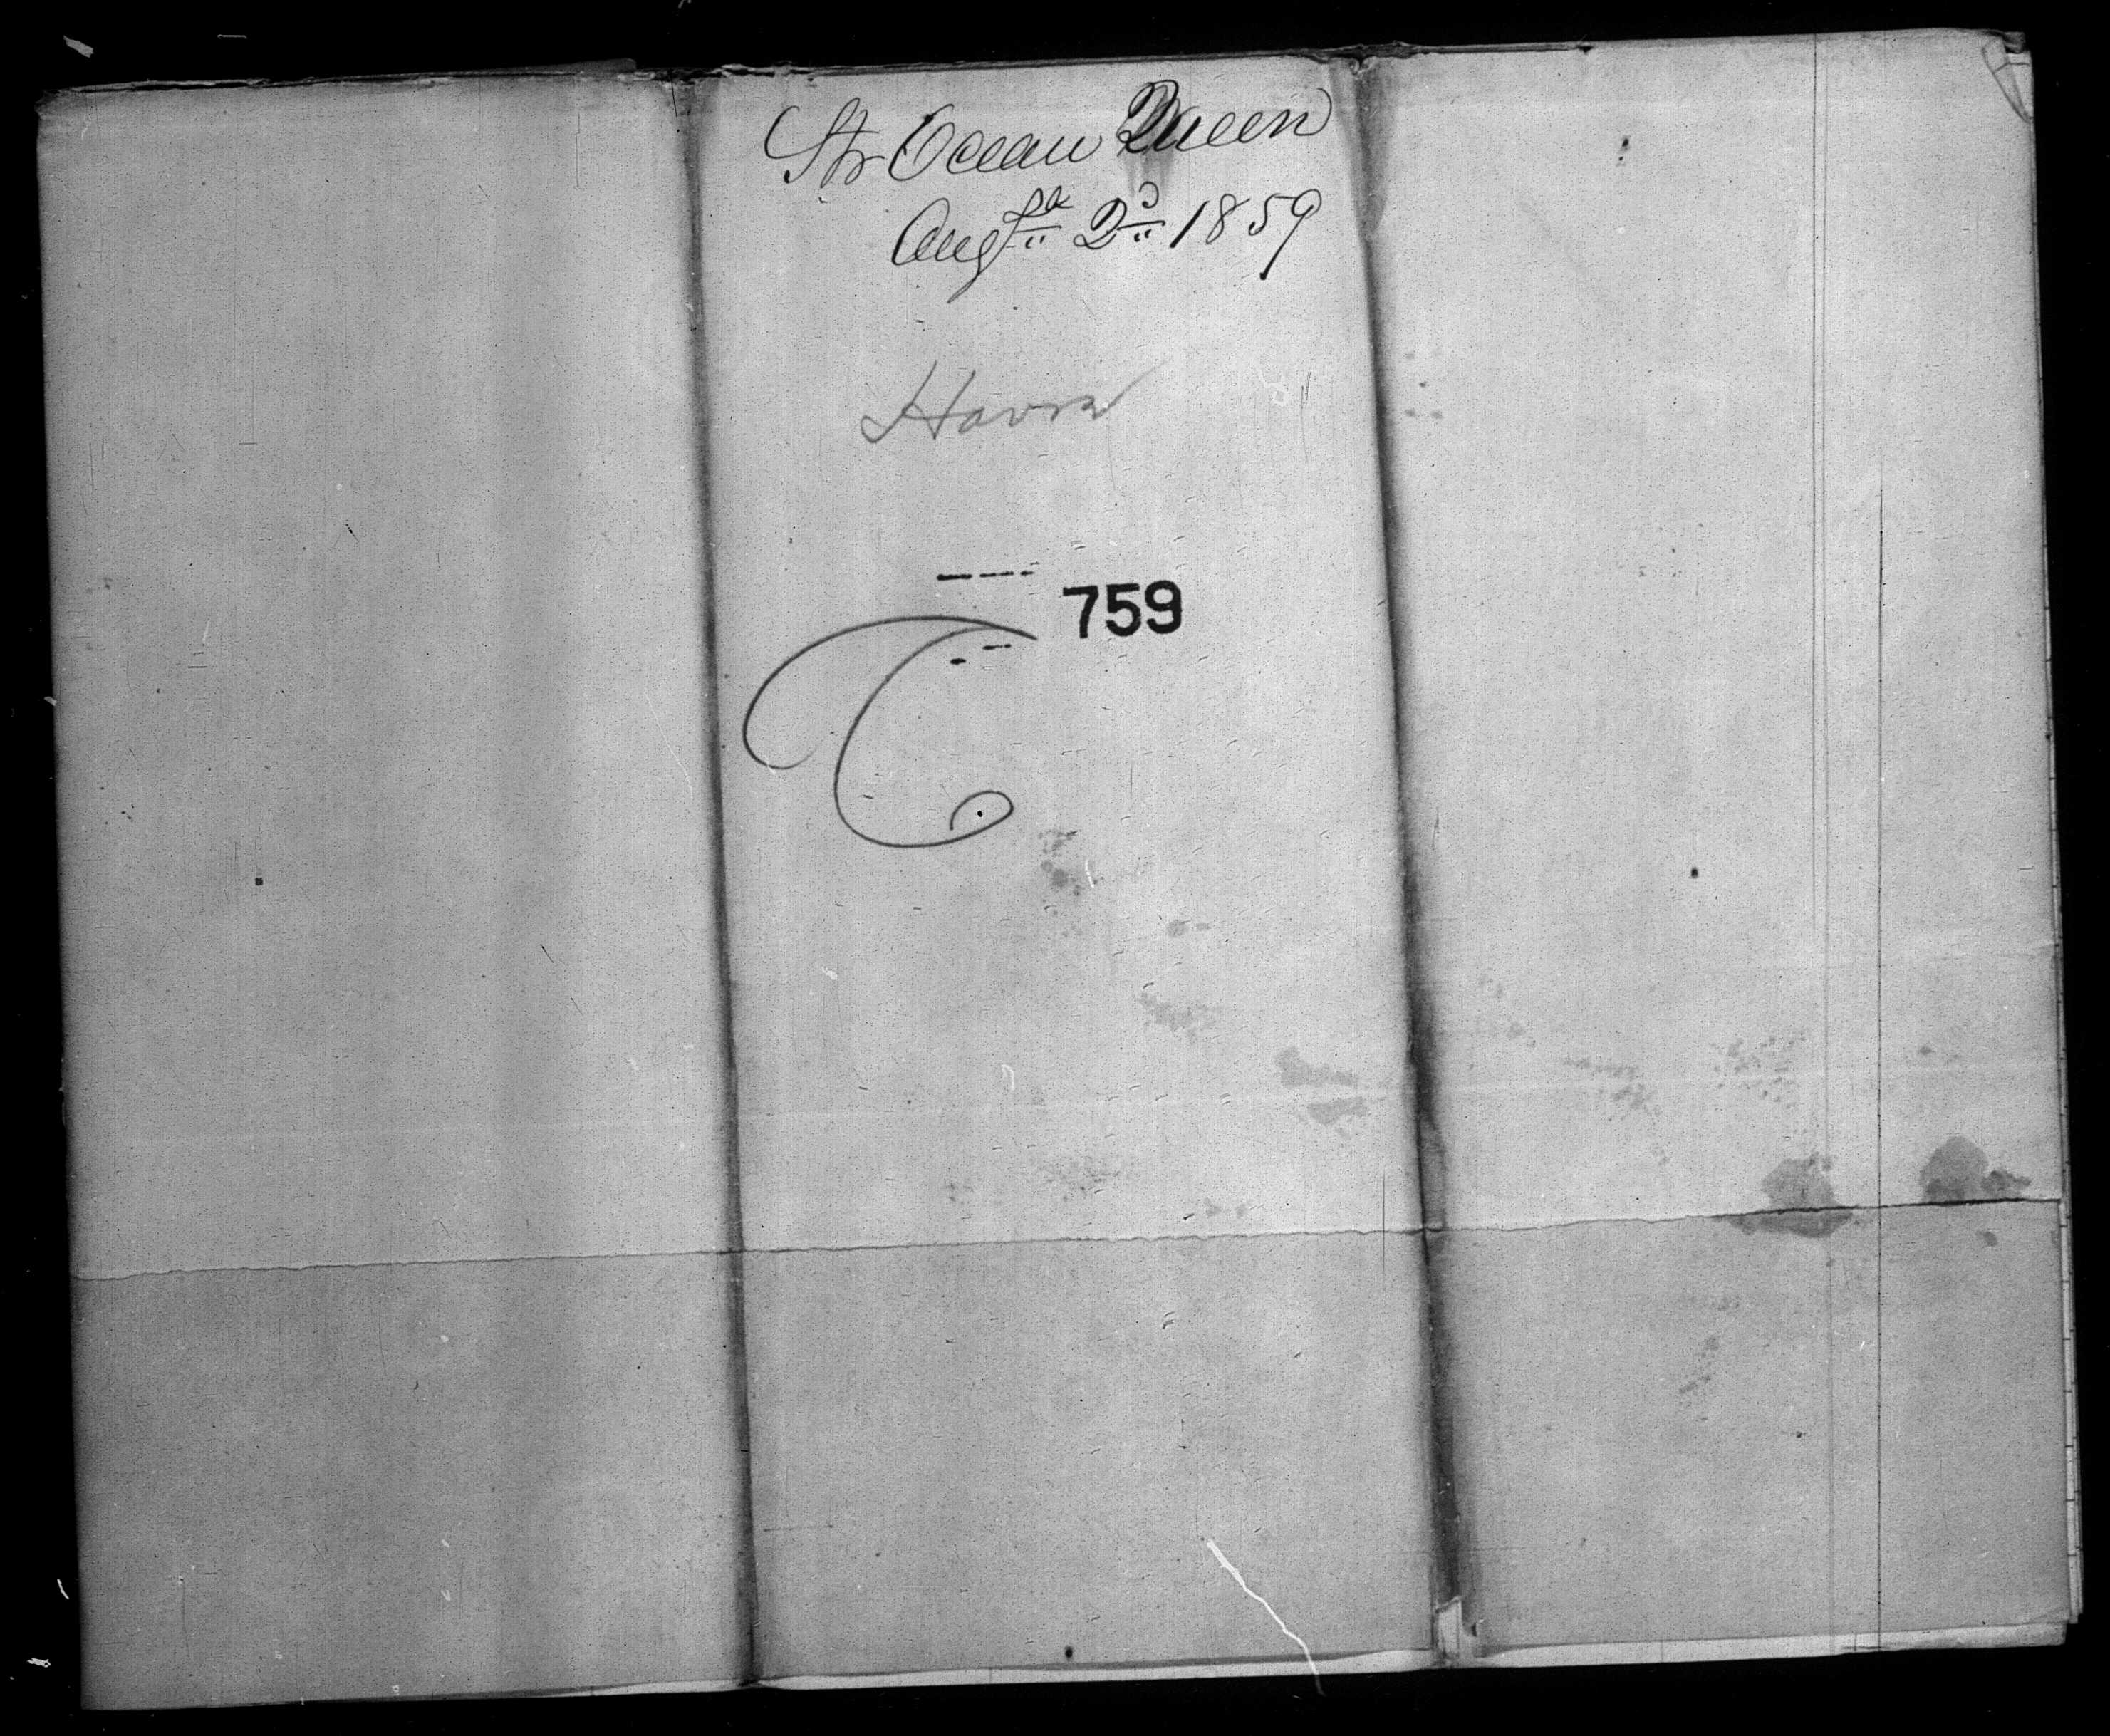 Str Ocean Queen
Augst 2d 1859
Havre
759